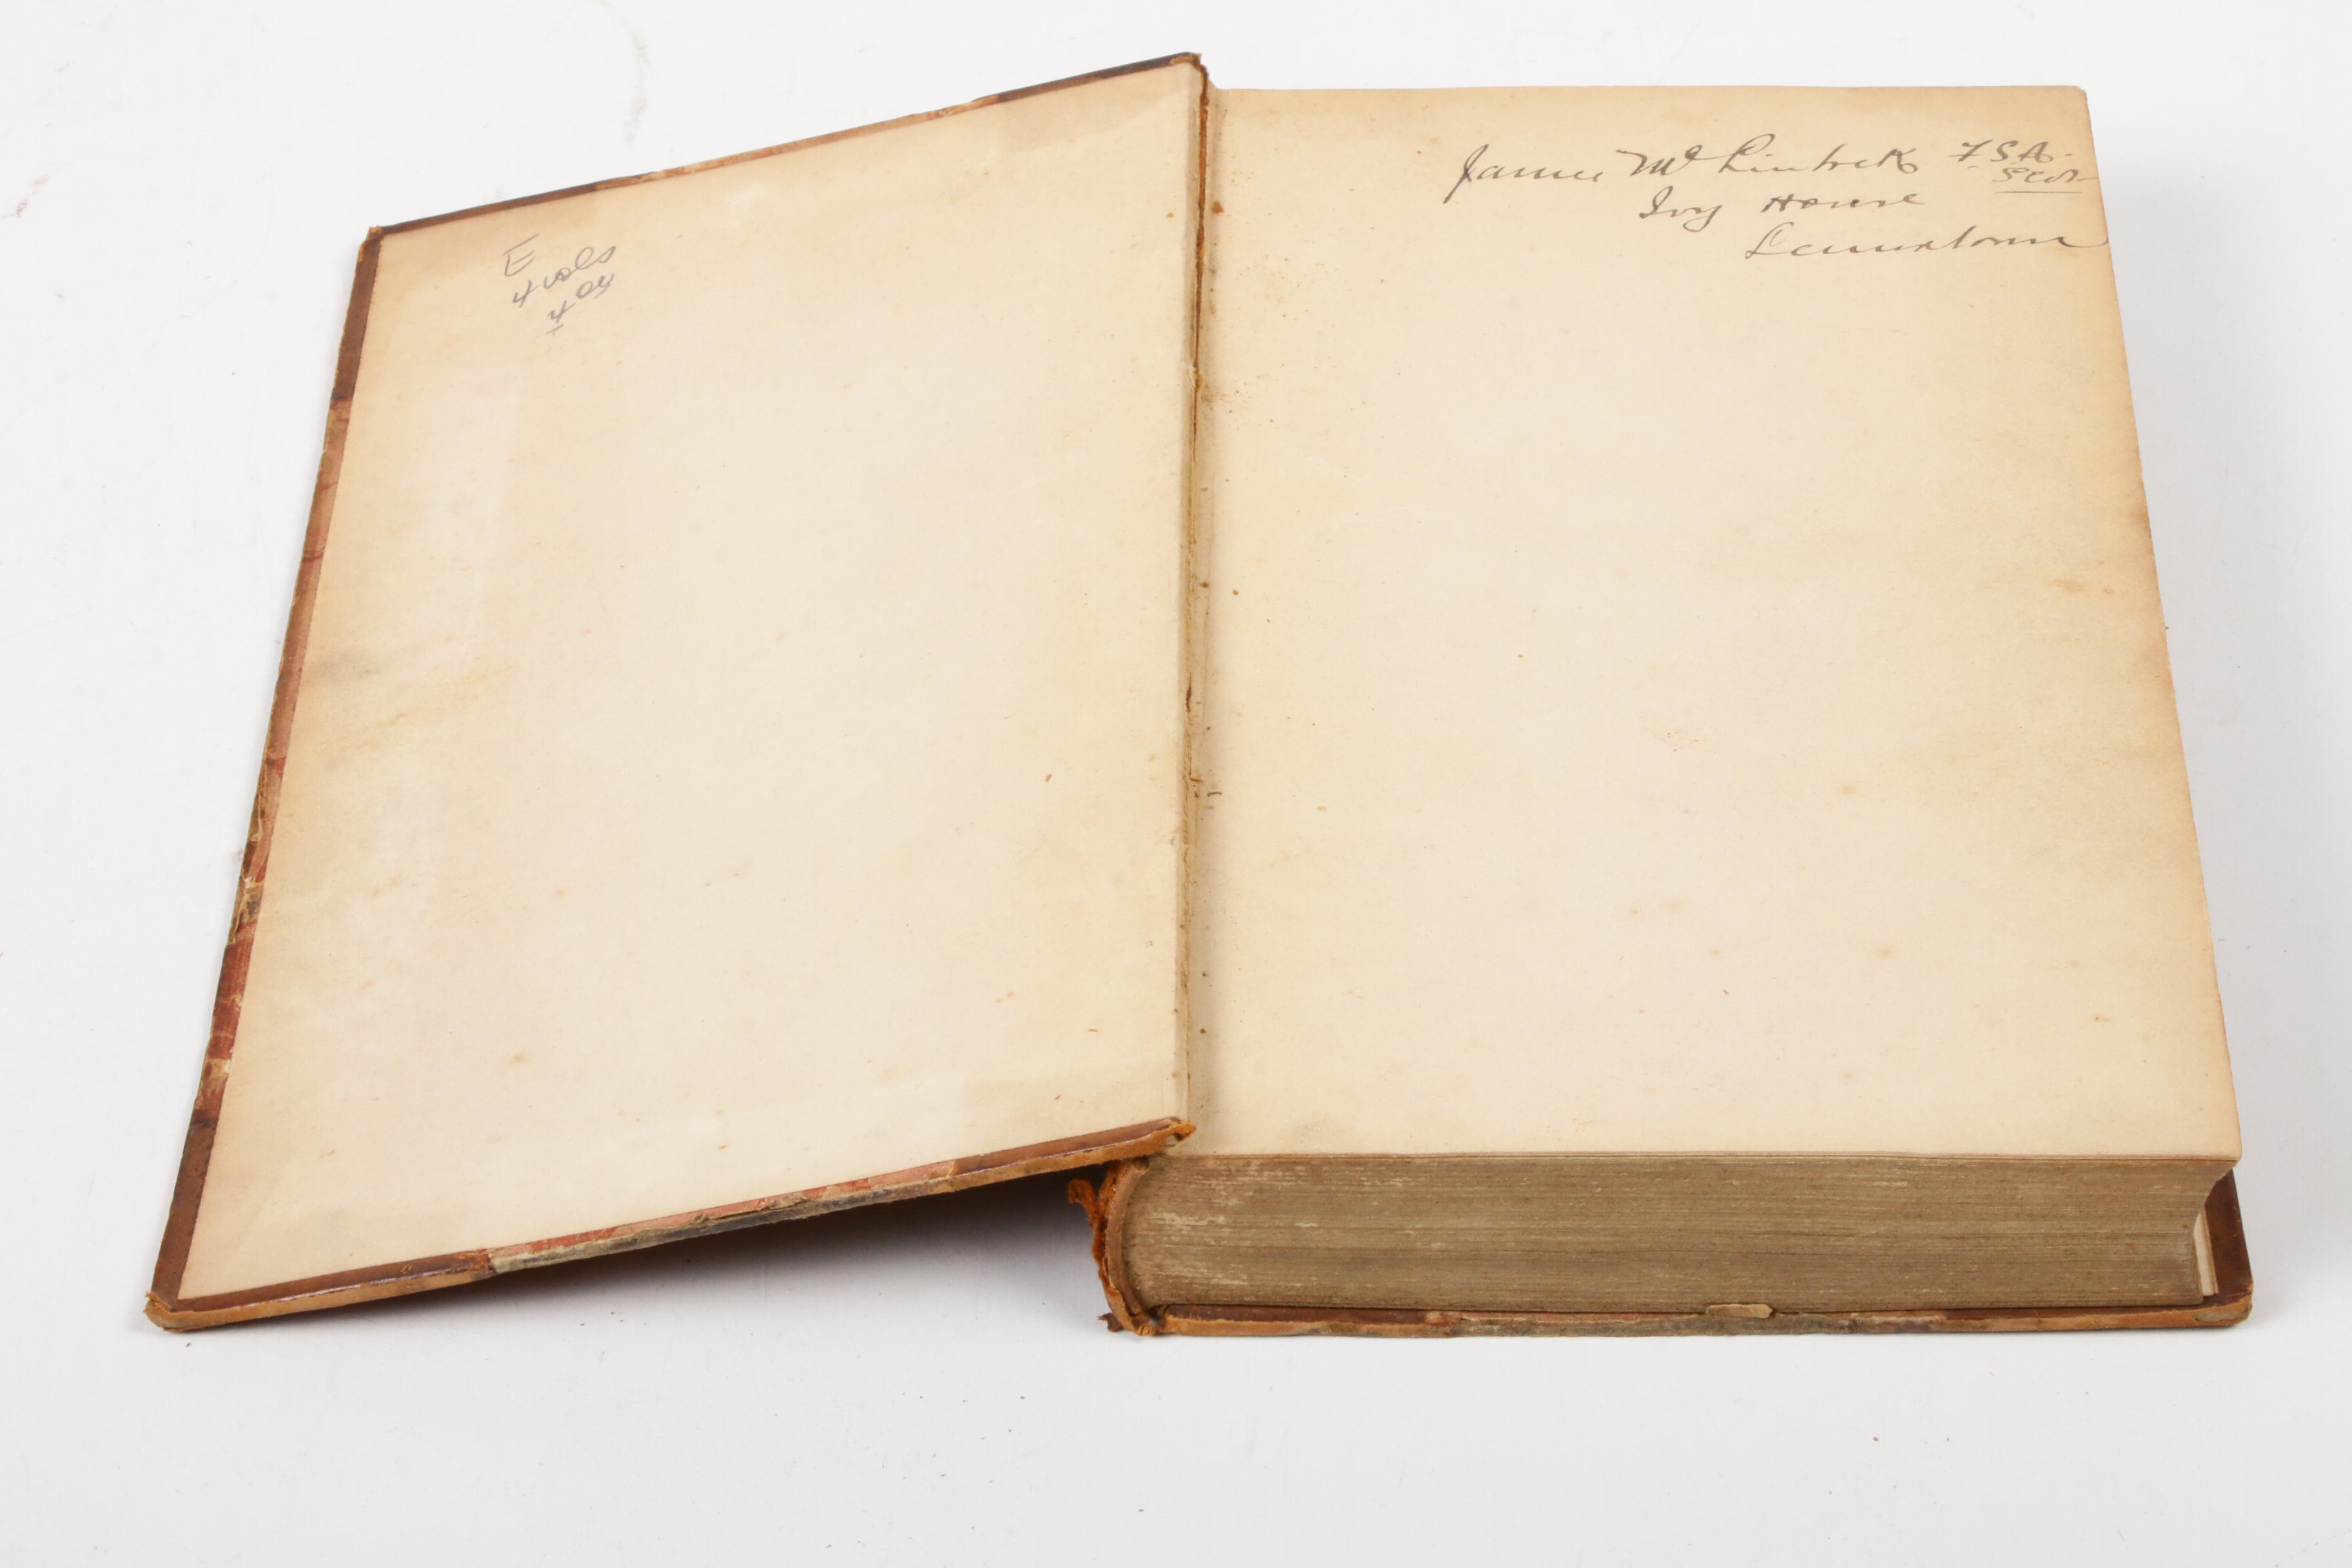 E
4 vols
4
James McLintock F.S.A.
Scot
Ivy House
Lennoxtown